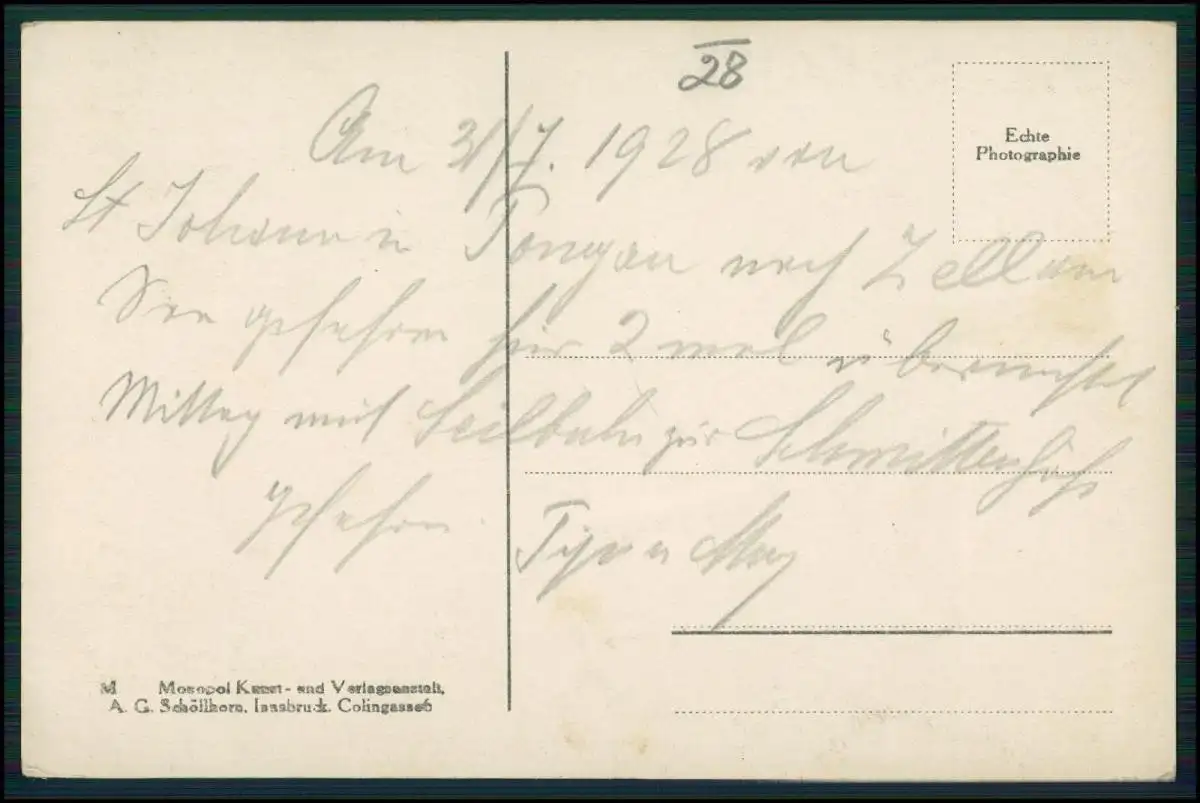 28
Echte
Photographie
Am 31/7. 1928 von
St Johann in Pongau nach Zell am
See gefahren hier 2 mal übernachtet
Mittag mit Seilbahn zur Schmittenhöhe
gefahren
M Monopol Kunst- und Verlagsanstalt,
A. G. Schöllhorn, Innsbruck. Colingasse6